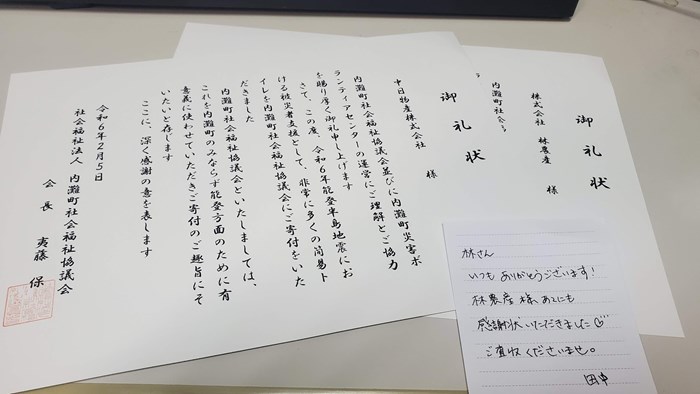 御礼状
株式会社 林農産 様
内灘町社会
御礼状
中日物産株式会社 様
内灘町社会福祉協議会並びに内灘町災害ボ
ランティアセンターの運営にご理解とご協力
を賜り厚く御礼申し上げます
さて、この度、令和6年能登半島地震にお
ける被災者支援として、非常に多くの簡易ト
イレを内灘町社会福祉協議会にご寄付をいた
だきました
内灘町社会福祉協議会といたしましては、
これを内灘町のみならず能登方面のために有
意義に使わせていただきご寄付のご趣旨にそ
いたいと存じます
ここに、深く感謝の意を表します
令和6年2月5日
社会福祉法人 内灘町社会福祉協議会
会長 夷藤 保
林さん
いつもありがとうございます!
林農産様あてにも
感謝状いただきました♡
ご査収くださいませ。
田中